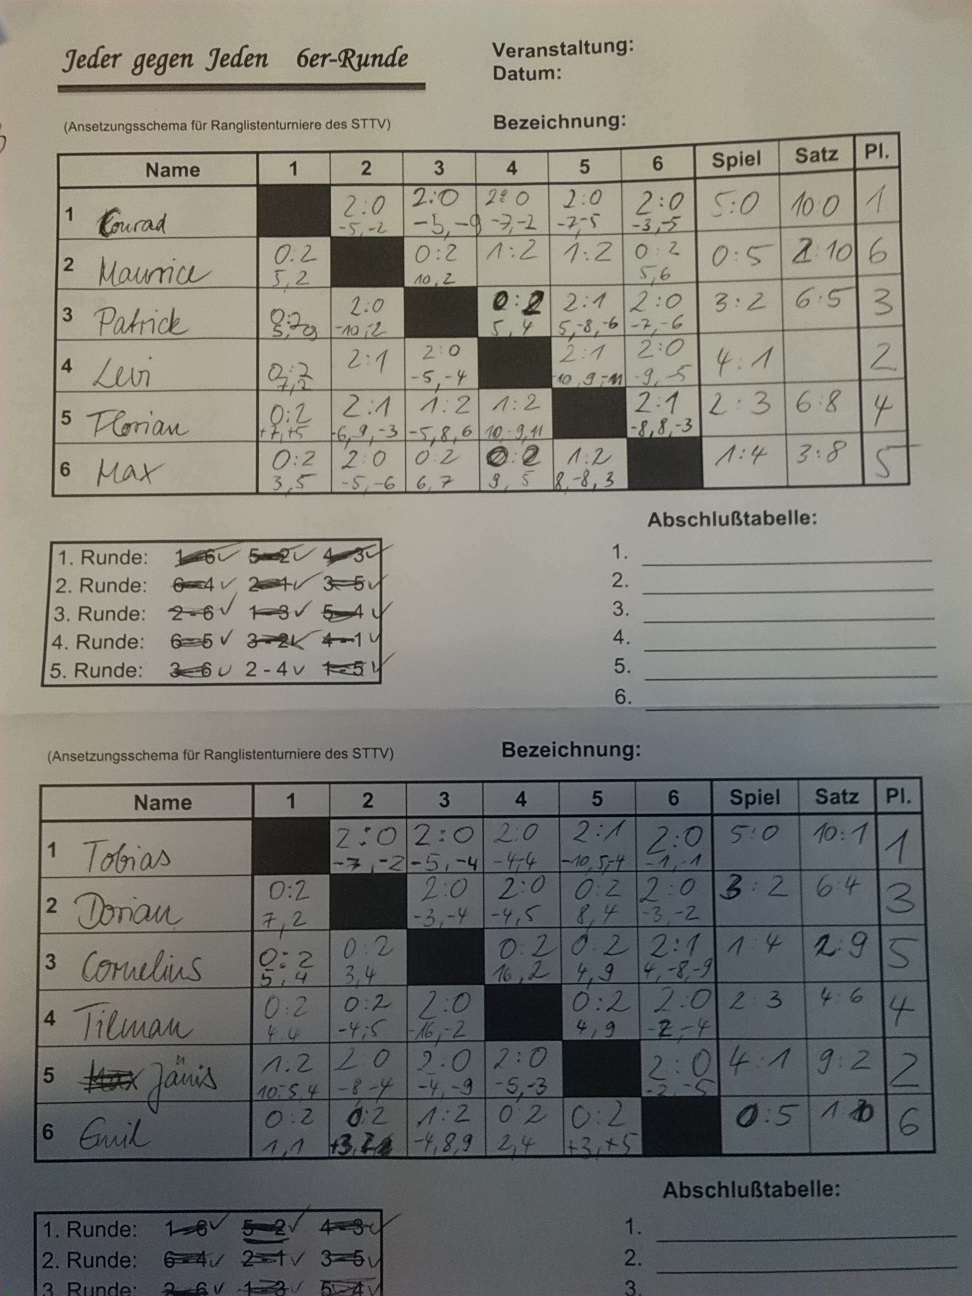 Jeder gegen Jeden 6er-Runde
Veranstaltung:
Datum:
(Ansetzungsschema für Ranglistenturniere des STTV)
Bezeichnung:
Name 1 2 3 4 5 6 Spiel Satz Pl.
1 Conrad 2:0 2:0 2:0 2:0 2:0 5:0 10:0 1
-5,-2 -5,-9 -7,-2 -7,-5 -3,-5
2 Maurice 0:2 0:2 1:2 1:2 0:2 0:5 2:10 6
5,2 10,2 5,6
3 Patrick 0:2 2:0 0:2 2:1 2:0 3:2 6:5 3
-10,2 5,4 5,-8,-6 -7,-6
4 Levi 0:2 2:1 2:0 2:1 2:0 4:1 2
7,2 -5,-4 -10,9,-11 -9,-5
5 Florian 0:2 2:1 1:2 1:2 2:1 2:3 6:8 4
+7,+5 -6,9,-3 -5,8,6 10,-9,11 -8,8,-3
6 Max 0:2 2:0 0:2 0:2 1:2 1:4 3:8 5
3,5 -5,-6 6,7 9,5 8,-8,3
Abschlußtabelle:
1. Runde: 1-6 5-2 4-3
2. Runde: 6-4 2-1 3-5
3. Runde: 2-6 1-3 5-4
4. Runde: 6-5 3-2 4-1
5. Runde: 3-6 2-4 1-5
1.
2.
3.
4.
5.
6.
(Ansetzungsschema für Ranglistenturniere des STTV)
Bezeichnung:
Name 1 2 3 4 5 6 Spiel Satz Pl.
1 Tobias 2:0 2:0 2:0 2:1 2:0 5:0 10:1 1
-7,-2 -5,-4 -4-4 -10,5,-4 -1,-1
2 Dorian 0:2 2:0 2:0 0:2 2:0 3:2 6:4 3
7,2 -3,-4 -4,5 8,4 -3,-2
3 Cornelius 0:2 0:2 0:2 0:2 2:1 1:4 2:9 5
5,4 3,4 16,2 4,9 4,-8,-9
4 Tilman 0:2 0:2 2:0 0:2 2:0 2:3 4:6 4
4,4 -4,5 -16,-2 4,9 -2,-4
5 Janis 1:2 2:0 2:0 2:0 2:0 4:1 9:2 2
10,-5,4 -8,-4 -4,-9 -5,-3 -2,-5
6 Emil 0:2 0:2 1:2 0:2 0:2 0:5 6
1,1 -4,8,9 2,4 +3,+5
Abschlußtabelle:
1. Runde: 1-6 5-2 4-3
2. Runde: 6-4 2-1 3-5
3. Runde: 2-6 1-3 5-4
1.
2.
3.